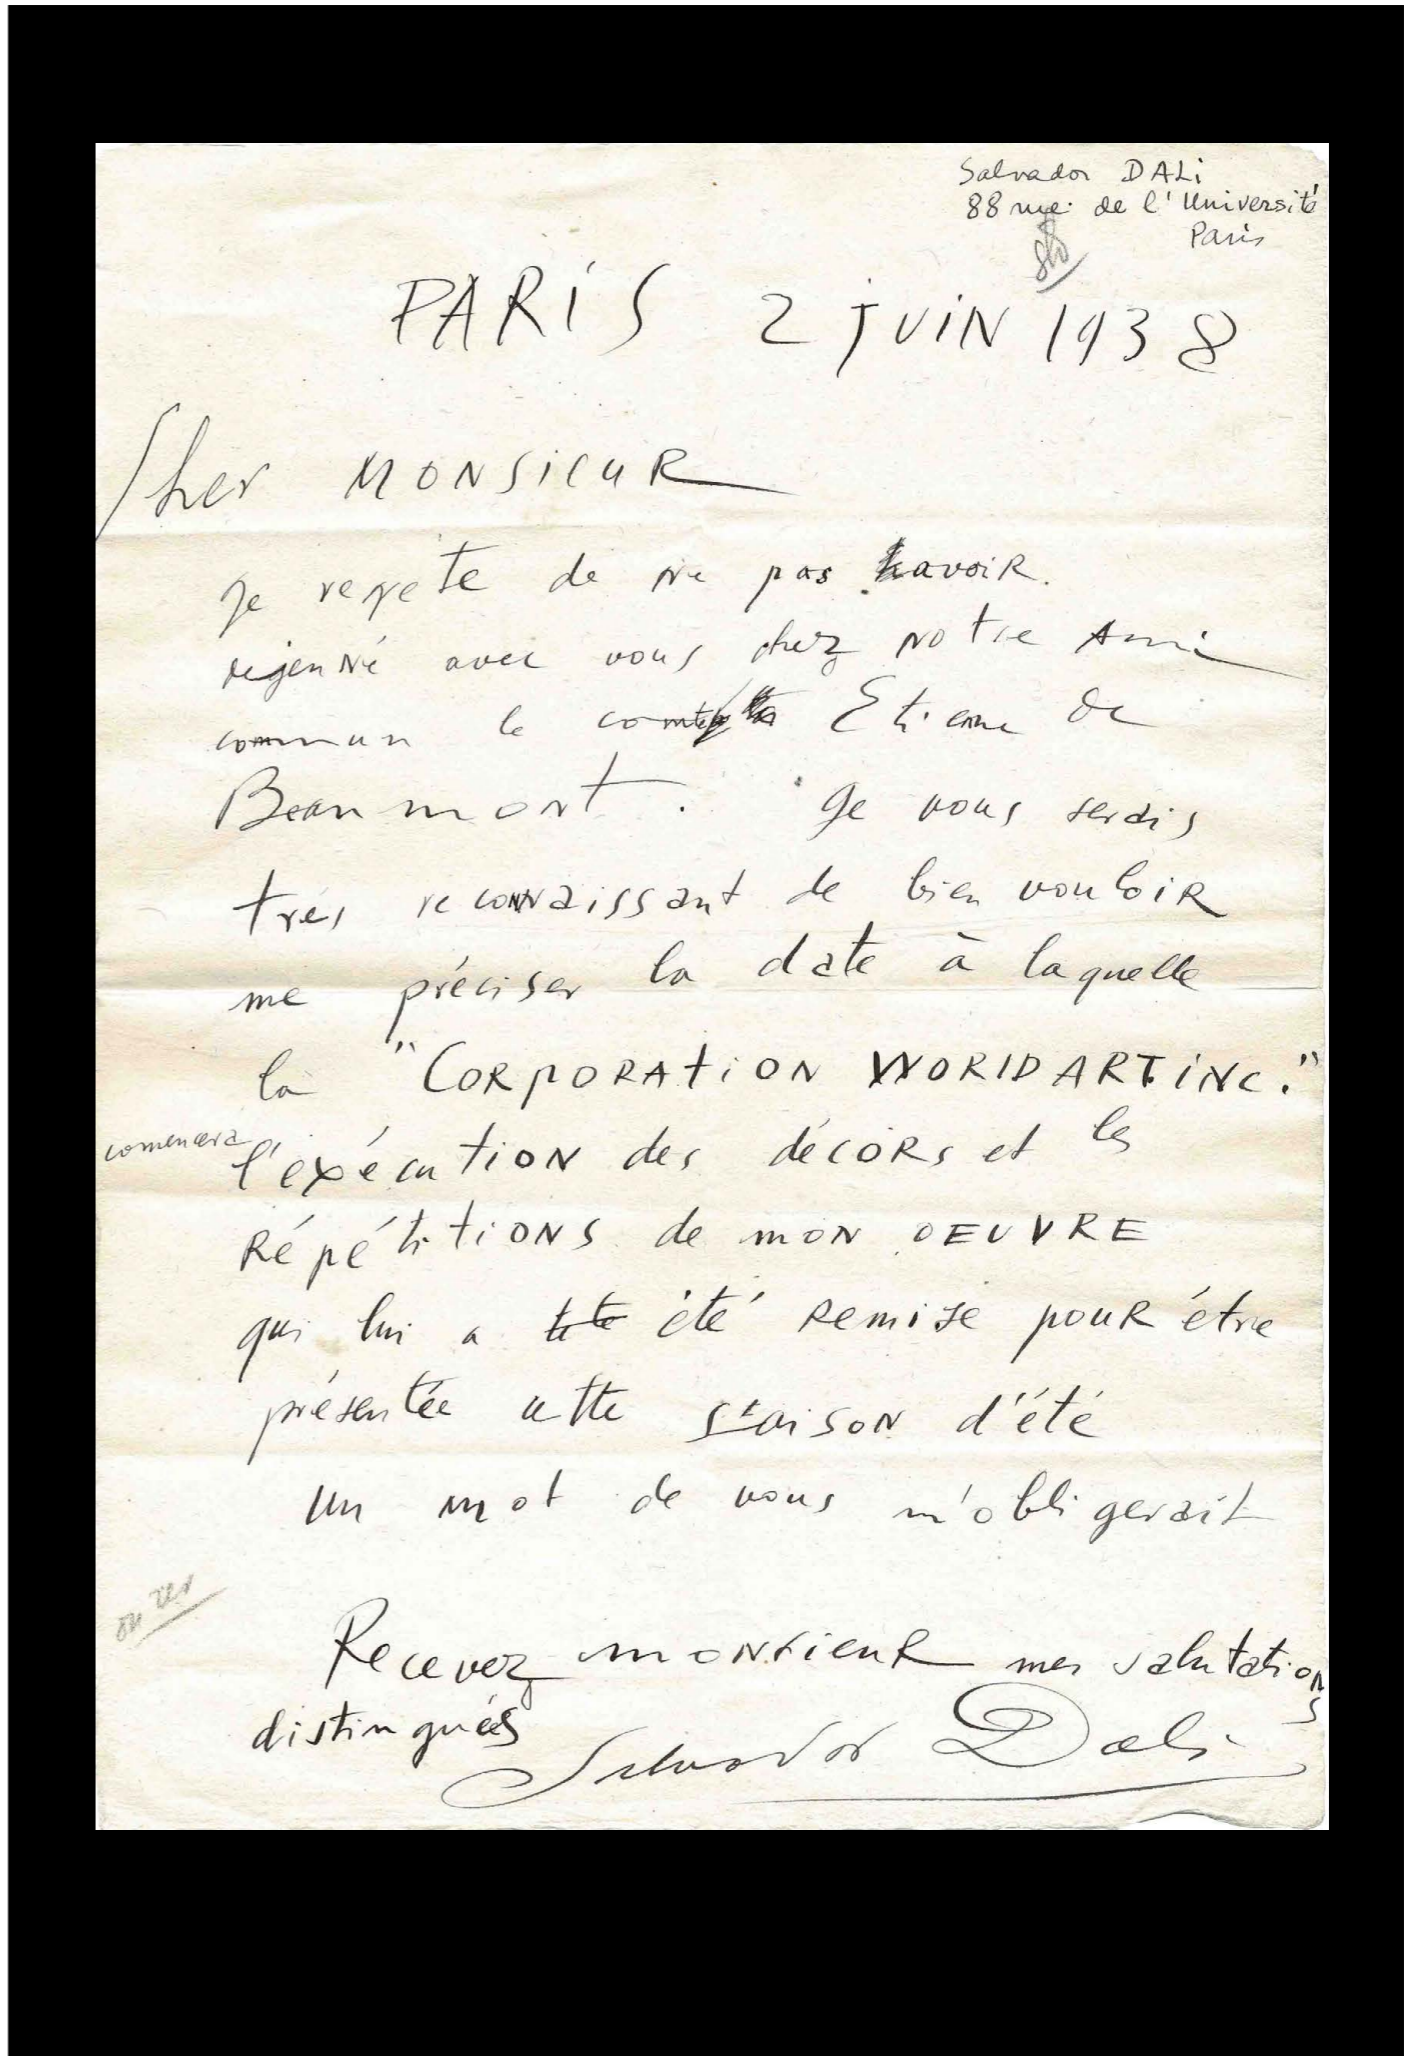 Salvador DALi
88 rue de l'Université
Paris
PARiS 2 jUiN 1938
Cher MONSieuR
Je regete de ne pas avoiR
dejenné avec vous chez notre Ami
commun le comte Etienne de
Beaumont. Je vous serais
très reconnaissant de bien vouloiR
me préciser la date à laquelle
la "CORpORAtiON WORlDARTiNC."
comencera
l'exécutiON des décORs et les
RépétitiONS de mON OEUVRE
qui lui a été Remise pouR être
présentée cette saisoN d'été
un mot de vous m'obligerait
Recevez monsieuR mes salutatioNs
distinguées
Salvador Dali